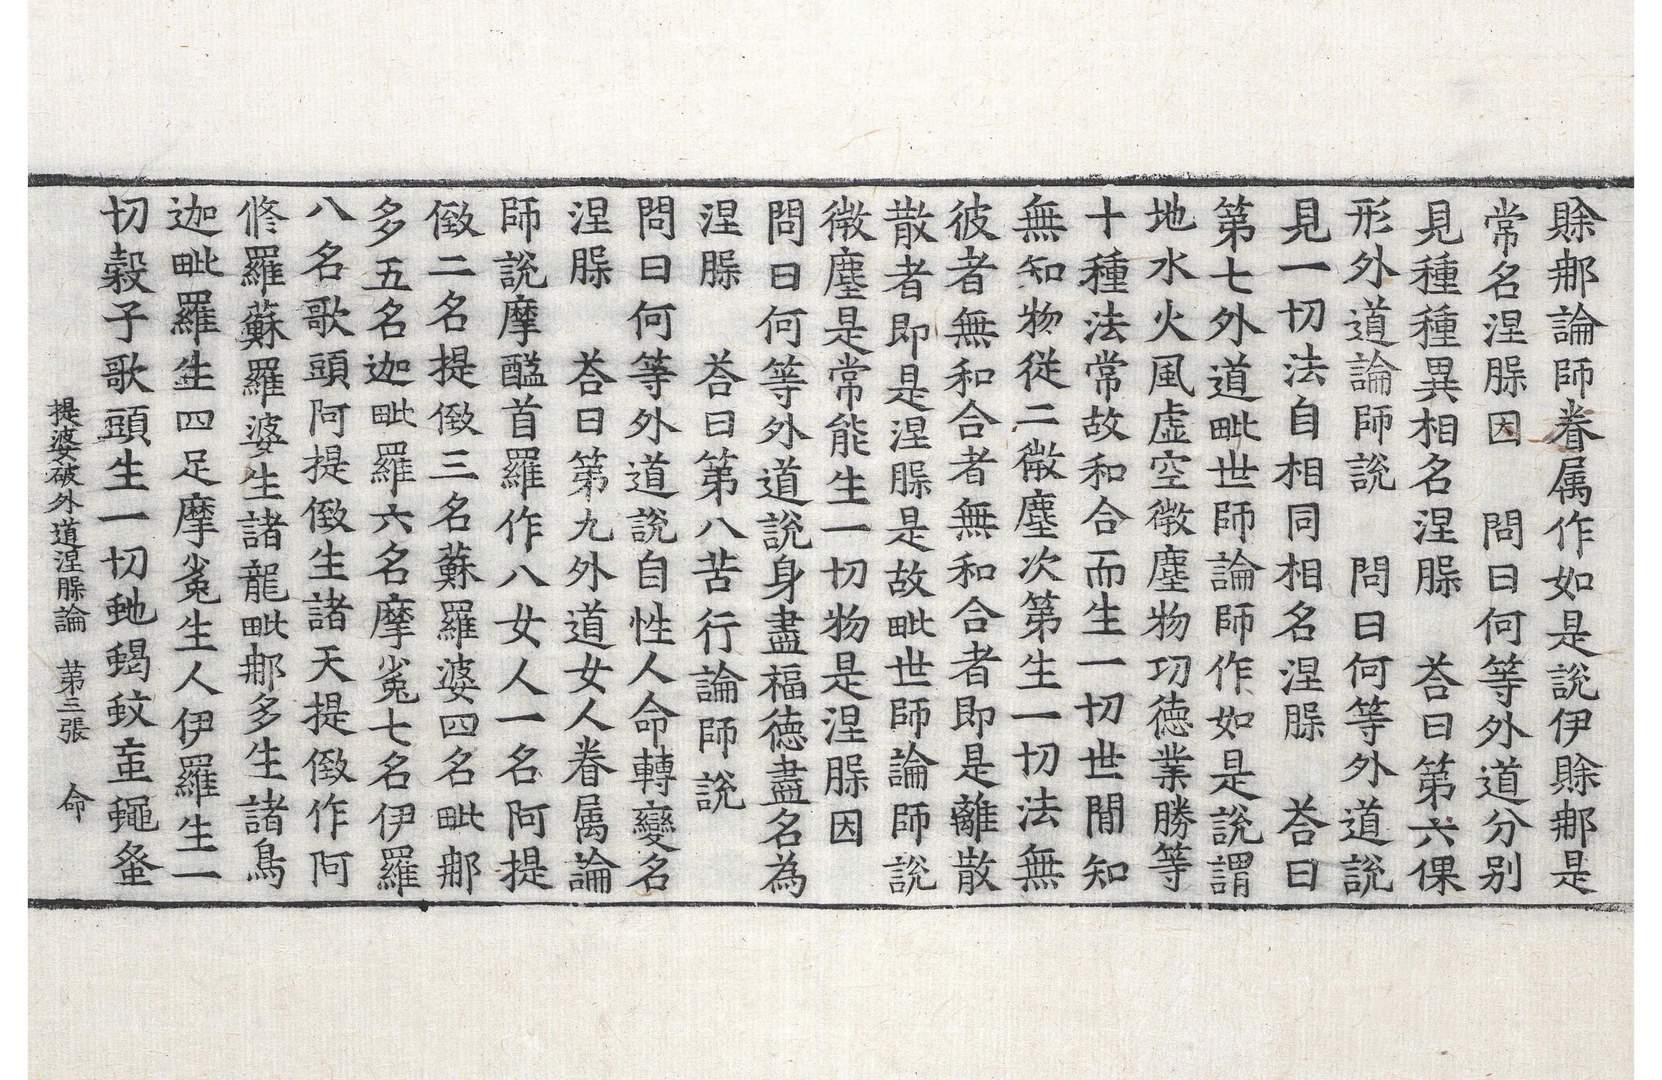 賖㖠論師眷属作如是說伊賖㖠是
常名涅䏶因　問曰何等外道分别
見種種異相名涅䏶　荅曰第六倮
形外道論師說　問曰何等外道說
見一切法自相同相名涅䏶　荅曰
第七外道毗世師論師作如是說謂
地水火風虛空微塵物㓛德業勝等
十種法常故和合而生一切世閒知
無知物從二微塵次第生一切法無
彼者無和合者無和合者即是離散
散者即是涅䏶是故毗世師論師說
微塵是常能生一切物是涅䏶因
問曰何等外道說身盡福德盡名為
涅䏶　荅曰第八苦行論師說
問曰何等外道說自性人命轉變名
涅䏶　荅曰第九外道女人眷属論
師說摩醯首羅作八女人一名阿提
緻二名提緻三名蘇羅婆四名毗㖠
多五名迦毗羅六名摩㝹七名伊羅
八名歌頭阿提緻生諸天提緻作阿
修羅蘇羅婆生諸龍毗㖠多生諸鳥
迦毗羅生四足摩㝹生人伊羅生一
切穀子歌頭生一切虵蝎蚊䖟蠅蚤
提婆破外道涅䏶論　第三張　命